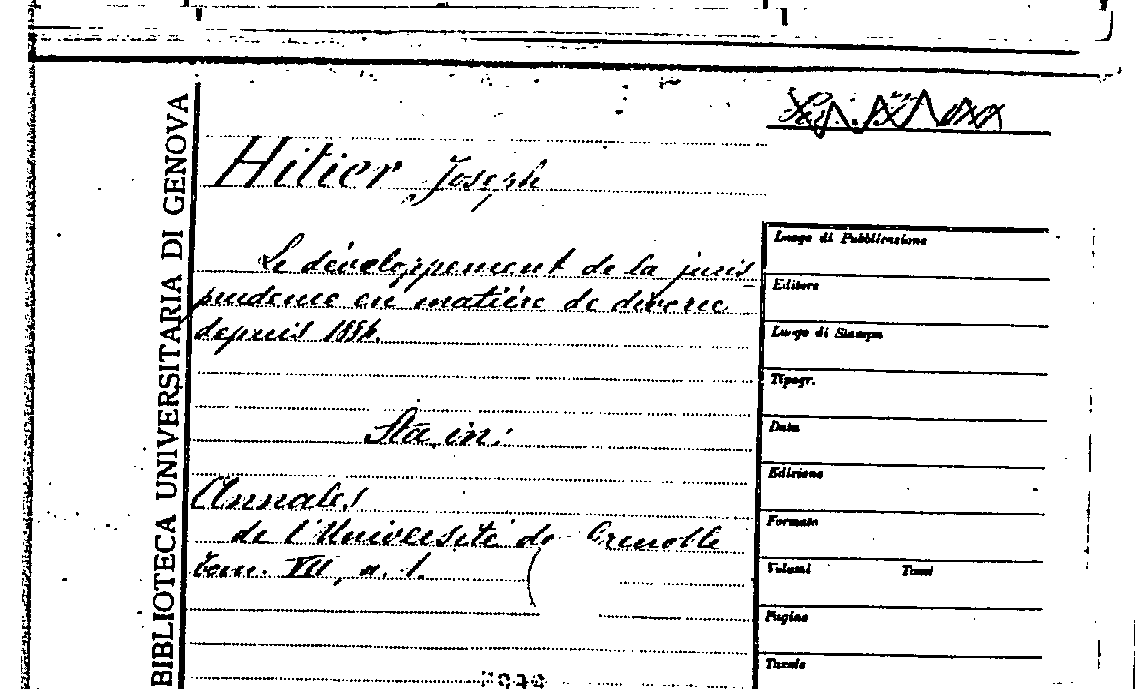 BIBLIOTECA UNIVERSITARIA DI GENOVA
Hitier Joseph
Le développement de la juris
prudence en matière de divorce
depuis 1884.
Sta in:
Annales
de l'Université de Grenoble
tom. VII, n. 1.
Luogo di Pubblicazione
Editore
Luogo di Stampa
Tipogr.
Data
Edizione
Formato
Volumi Tomi
Pagine
Tavole